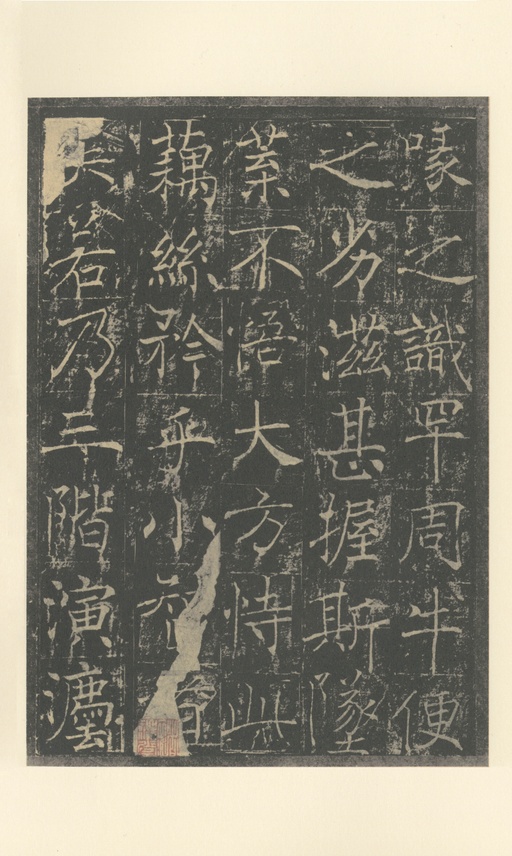 喙之識罕周牛便
之劣滋甚握斯墜
葉不悟大方恃此
藕絲矜乎小智
若乃三階演灋